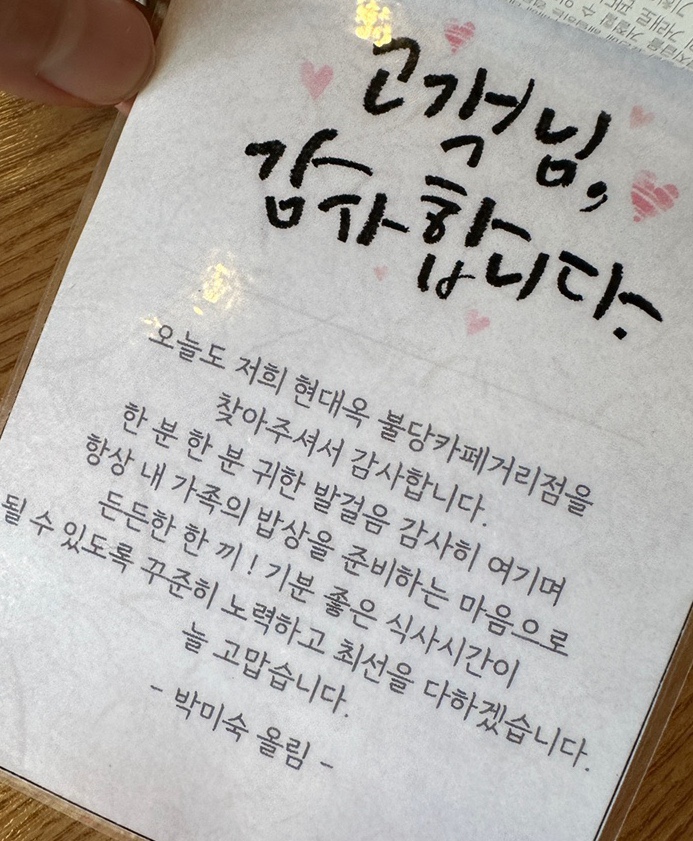 고객님,
감사합니다.
오늘도 저희 현대옥 불당카페거리점을
찾아주셔서 감사합니다.
한 분 한 분 귀한 발걸음 감사히 여기며
항상 내 가족의 밥상을 준비하는 마음으로
든든한 한 끼! 기분 좋은 식사시간이
될 수 있도록 꾸준히 노력하고 최선을 다하겠습니다.
늘 고맙습니다.
- 박미숙 올림 -